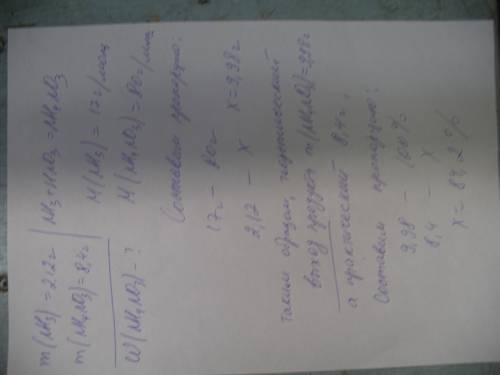 m(NH3) = 2,12г
m(NH4NO3) = 8,4г
W(NH4NO3) - ?
NH3 + HNO3 = NH4NO3
M(NH3) = 17г/моль
M(NH4NO3) = 80г/моль
Составим пропорцию:
17г - 80г
2,12 - x x = 9,98г
Таким образом, теоретический
выход продукта m(NH4NO3) = 9,98г
а практический 8,4г,
Составим пропорцию:
9,98 - 100%
8,4 - x
x = 84,2%